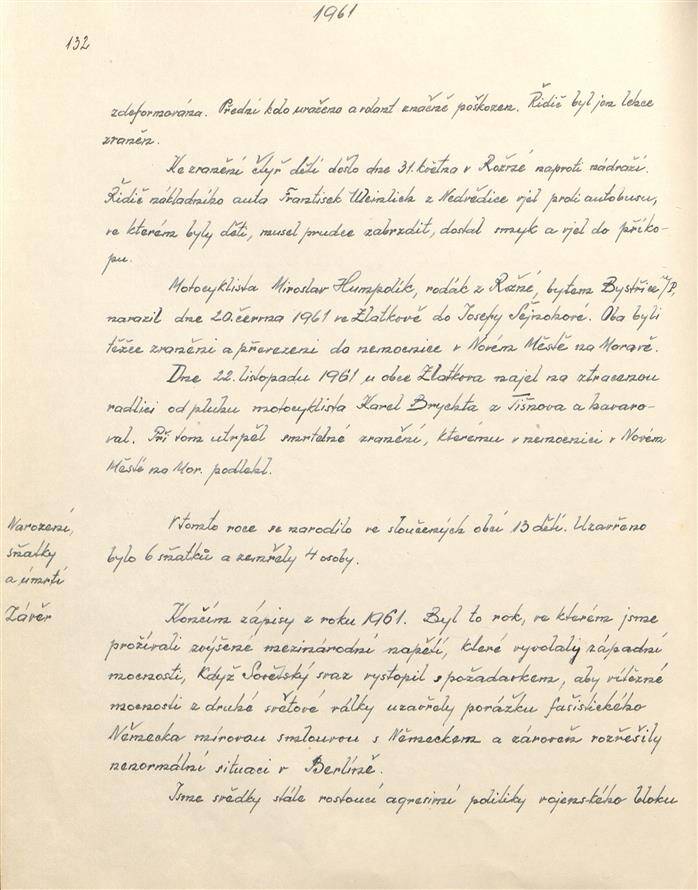 1961
132
zdeformována. Přední kolo uraženo a volant značně poškozen. Řidič byl jen lehce
zraněn.
Ke zranění čtyř dětí došlo dne 31. května v Rožné naproti nádraží.
Řidič nákladního auta František Weinlich z Nedvědice vjel proti autobusu,
ve kterém byly děti, musel prudce zabrzdit, dostal smyk a vjel do příko-
pu.
Motocyklista Miroslav Humpolík, rodák z Rožné, bytem Bystřice n/P,
narazil dne 20. června 1961 ve Zlatkově do Josefy Sejnohové. Oba byli
těžce zraněni a převezeni do nemocnice v Novém Městě na Moravě.
Dne 22. listopadu 1961 u obce Zlatkova najel na ztracenou
radlici od pluhu motocyklista Karel Brychta z Tišnova a havaro-
val. Při tom utrpěl smrtelné zranění, kterému v nemocnici v Novém
Městě na Mor. podlehl.
Narození,
sňatky
a úmrtí
V tomto roce se narodilo ve sloučených obcí 13 dětí. Uzavřeno
bylo 6 sňatků a zemřely 4 osoby.
Závěr
Končím zápisy z roku 1961. Byl to rok, ve kterém jsme
prožívali zvýšené mezinárodní napětí, které vyvolaly západní
mocnosti, když Sovětský svaz vystoupil s požadavkem, aby vítězné
mocnosti z druhé světové války uzavřely porážku fašistického
Německa mírovou smlouvou s Německem a zároveň rozřešily
nenormální situaci v Berlíně.
Jsme svědky stále rostoucí agresivní politiky vojenského bloku